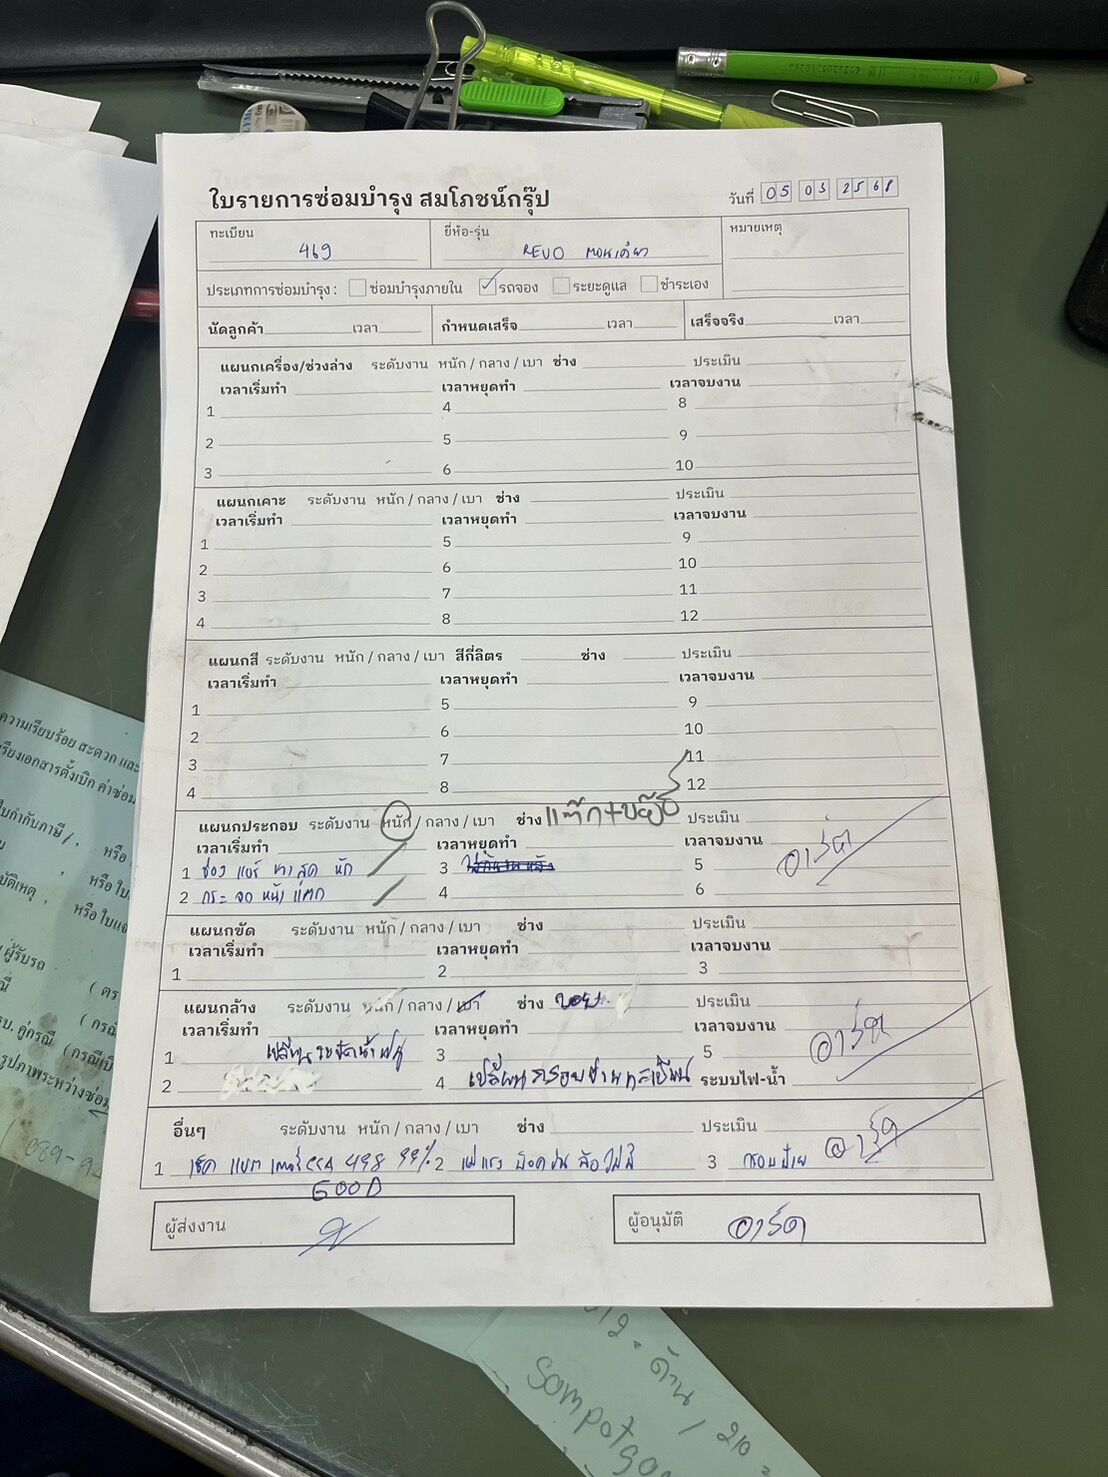 ใบรายการซ่อมบำรุง สมโภชน์กรุ๊ป
วันที่ 05 03 2568
ทะเบียน 469
ยี่ห้อ-รุ่น REVO ตอนเดียว
หมายเหตุ
ประเภทการซ่อมบำรุง : ซ่อมบำรุงภายใน รถจอง ระยะดูแล ชำระเอง
นัดลูกค้า เวลา กำหนดเสร็จ เวลา เสร็จจริง เวลา
แผนกเครื่อง/ช่วงล่าง ระดับงาน หนัก / กลาง / เบา ช่าง ประเมิน
เวลาเริ่มทำ เวลาหยุดทำ เวลาจบงาน
1 4 8
2 5 9
3 6 10
แผนกเคาะ ระดับงาน หนัก / กลาง / เบา ช่าง ประเมิน
เวลาเริ่มทำ เวลาหยุดทำ เวลาจบงาน
1 5 9
2 6 10
3 7 11
4 8 12
แผนกสี ระดับงาน หนัก / กลาง / เบา สีกี่ลิตร ช่าง ประเมิน
เวลาเริ่มทำ เวลาหยุดทำ เวลาจบงาน
1 5 9
2 6 10
3 7 11
4 8 12
แผนกประกอบ ระดับงาน หนัก / กลาง / เบา ช่าง ประเมิน
เวลาเริ่มทำ เวลาหยุดทำ เวลาจบงาน
1 ช่อง แอร์ ขวาสุด หัก 3 5 อาร์ต
2 กระจกหน้า แตก 4 6
แผนกขัด ระดับงาน หนัก / กลาง / เบา ช่าง ประเมิน
เวลาเริ่มทำ เวลาหยุดทำ เวลาจบงาน
1 2 3
แผนกล้าง ระดับงาน หนัก / กลาง / เบา ช่าง ประเมิน
เวลาเริ่มทำ เวลาหยุดทำ เวลาจบงาน
1 เปลี่ยน 3 5 อาร์ต
2 4 เปลี่ยนกรอบป้ายทะเบียน ระบบไฟ-น้ำ
อื่นๆ ระดับงาน หนัก / กลาง / เบา ช่าง ประเมิน
1 เช็ค แบตเตอรี่ CCA 498 99% 2 แม่แรง ล้อ ไม่มี 3 กรอบป้าย อาร์ต
GOOD
ผู้ส่งงาน
ผู้อนุมัติ อาร์ต
ความเรียบร้อย สะดวก และ
เรียงเอกสารตั้งเบิก ค่าซ่อม
ใบกำกับภาษี
หรือ
บัติเหตุ , หรือ
หรือ ใบแจ
ผู้รับรถ
( กรณี
คู่กรณี (กรณี
รูปภาพระหว่างซ่อม
ด้าน
210